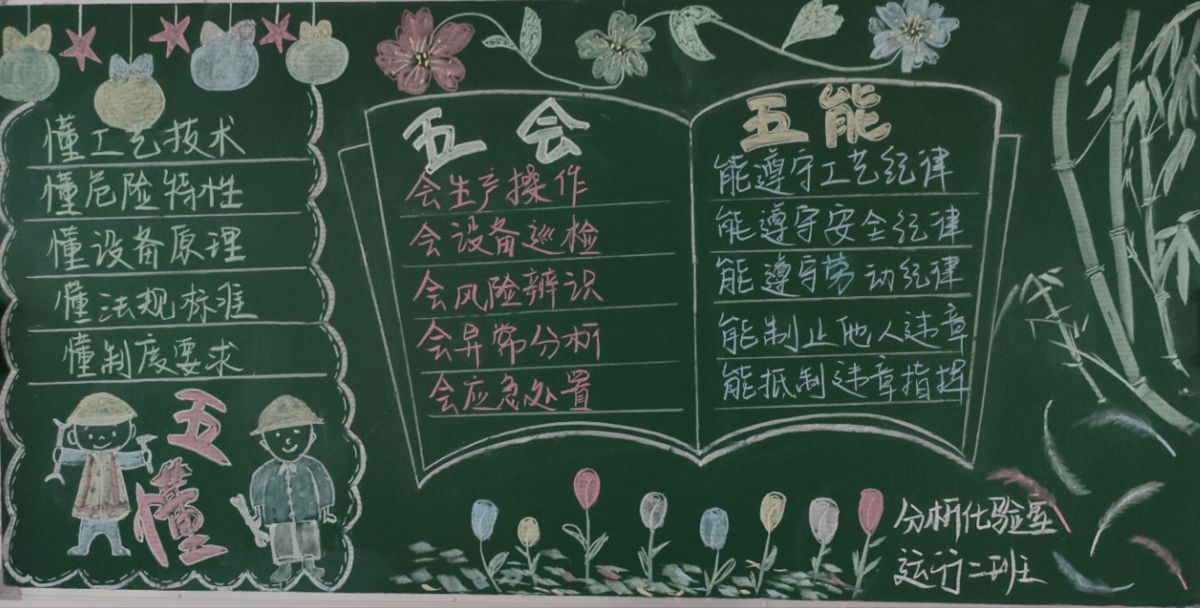 懂工艺技术
懂危险特性
懂设备原理
懂法规标准
懂制度要求
五
懂
五会
会生产操作
会设备巡检
会风险辨识
会异常分析
会应急处置
五能
能遵守工艺纪律
能遵守安全纪律
能遵守劳动纪律
能制止他人违章
能抵制违章指挥
分析化验室
运行二班